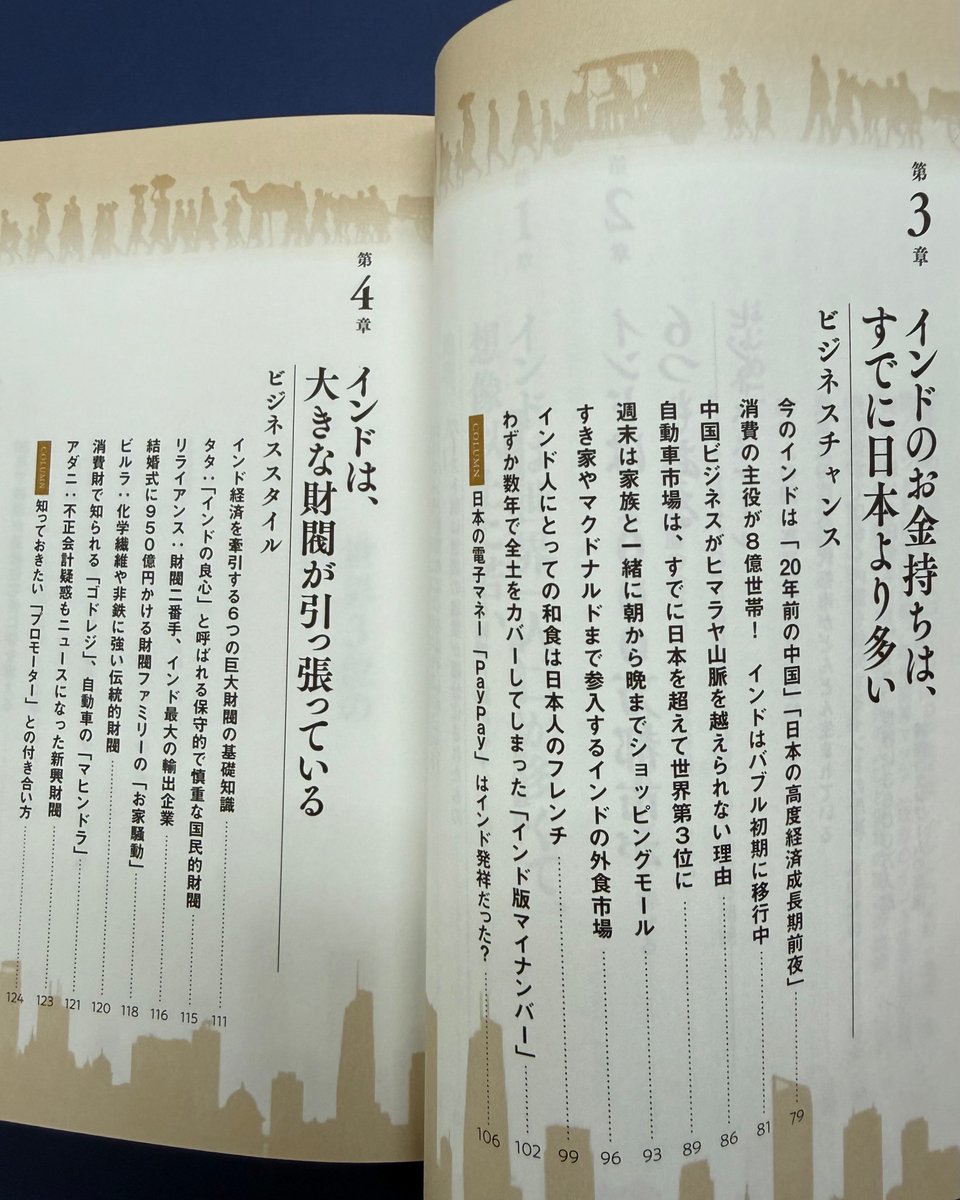 第3章
インドのお金持ちは、
すでに日本より多い
ビジネスチャンス
今のインドは「20年前の中国」「日本の高度経済成長期前夜」 79
消費の主役が8億世帯！　インドはバブル初期に移行中 81
中国ビジネスがヒマラヤ山脈を越えられない理由 86
自動車市場は、すでに日本を超えて世界第3位に 89
週末は家族と一緒に朝から晩までショッピングモール 93
すき家やマクドナルドまで参入するインドの外食市場 96
インド人にとっての和食は日本人のフレンチ 99
わずか数年で全土をカバーしてしまった「インド版マイナンバー」 102
COLUMN 日本の電子マネー「PayPay」はインド発祥だった？ 106
第4章
インドは、
大きな財閥が引っ張っている
ビジネススタイル
インド経済を牽引する6つの巨大財閥の基礎知識 111
タタ：「インドの良心」と呼ばれる保守的で慎重な国民的財閥 115
リライアンス：財閥二番手、インド最大の輸出企業 116
結婚式に950億円かける財閥ファミリーの「お家騒動」 118
ビルラ：化学繊維や非鉄に強い伝統的財閥 120
消費財で知られる「ゴドレジ」、自動車の「マヒンドラ」 121
アダニ：不正会計疑惑もニュースになった新興財閥 123
COLUMN 知っておきたい「プロモーター」との付き合い方 124